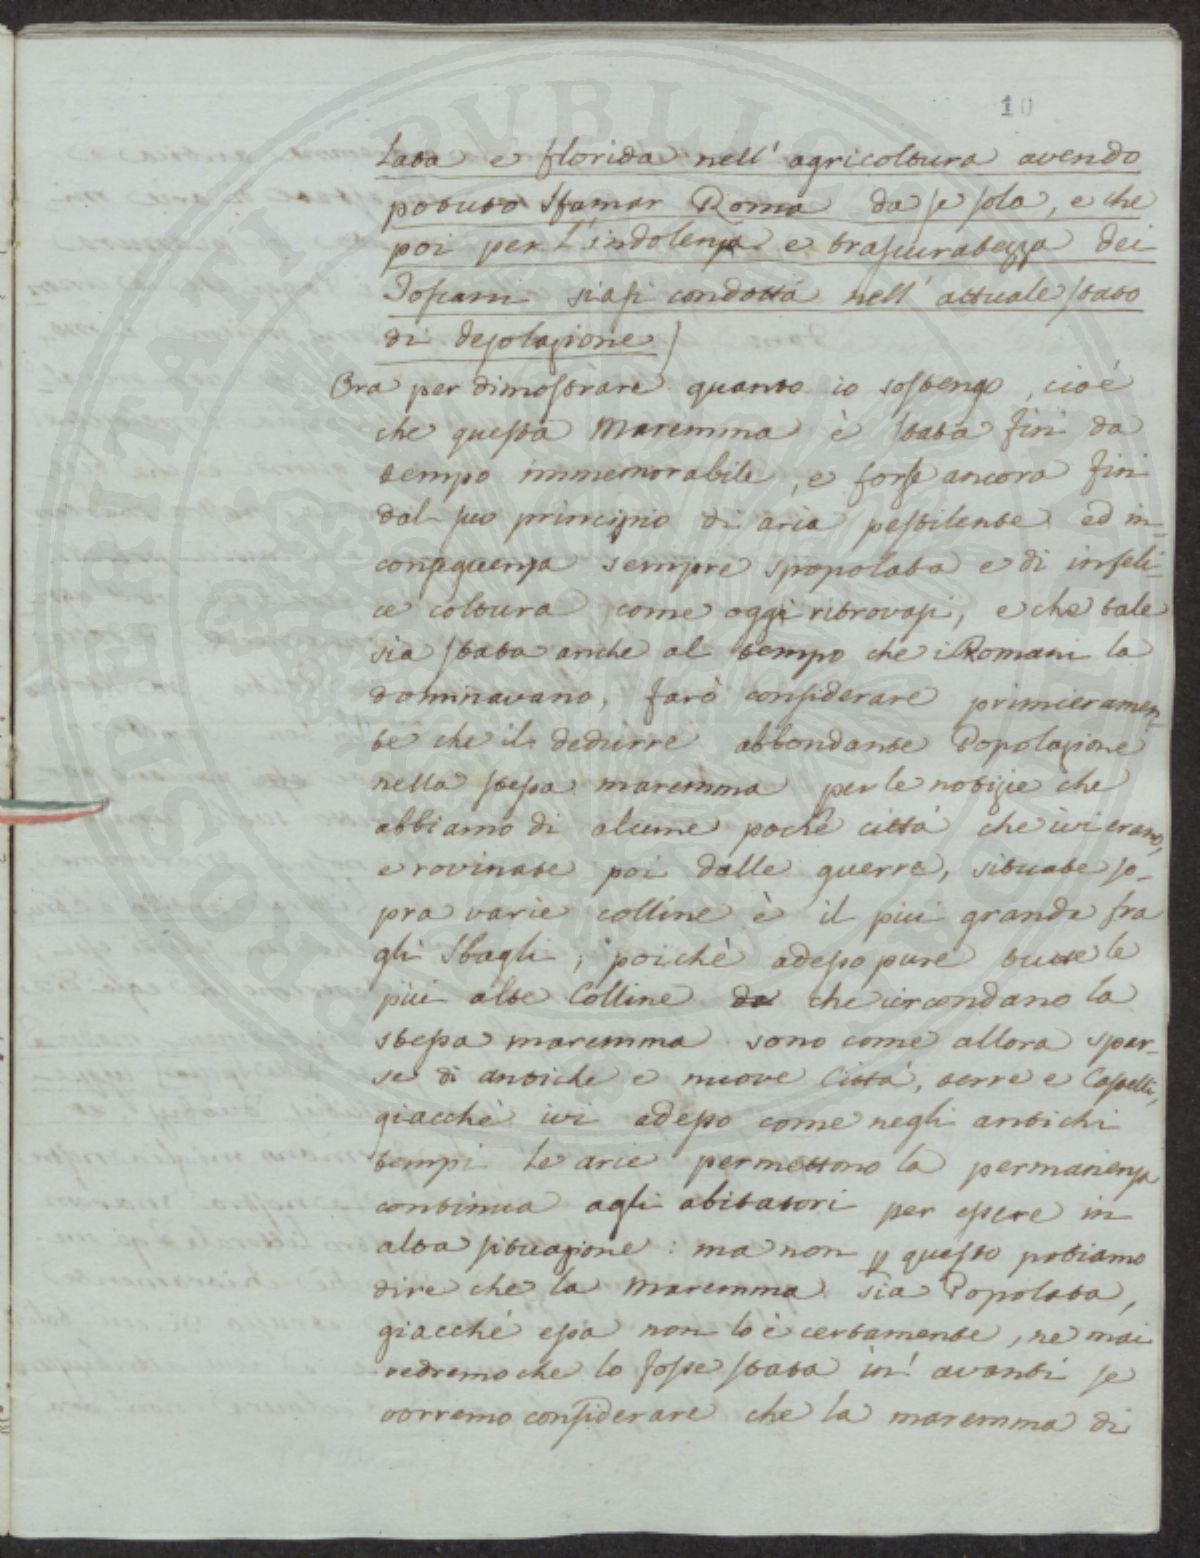 10
lata e florida nell' agricoltura avendo
potuto sfamar Roma da se sola, e che
poi per l'indolenza e trascuratezza dei
Toscani siasi condotta nell' attuale stato
di desolazione)
Ora per dimostrare quanto io sostengo, cioé
che questa Maremma è stata fin da
tempo immemorabile, e forse ancora fin
dal suo principio di aria pestilente ed in=
conseguenza sempre spopolata e di infeli=
ce coltura come oggi ritrovasi, e che tale
sia stata anche al tempo che i Romani la
dominavano, farò considerare primieramen=
te che il dedurre abbondante Popolazione
nella stessa maremma per le notizie che
abbiamo di alcune poche cittá che ivi erano,
e rovinate poi dalle guerre, situate so=
pra varie colline è il piu grande fra
gli Sbagli; poichè adesso pure tutte le
piu alte Colline che circondano la
stessa maremma sono come allora spar=
se di antiche e nuove Cittá, terre e Castelli,
giacchè ivi adesso come negli antichi
tempi le arie permettono la permanenza
continua agli abitatori per essere in
alta situazione: ma non p questo potiamo
dire che la Maremma sia Popolata,
giacchè essa non lo è certamente, ne mai
vedremo che lo fosse stata in' avanti se
vorremo considerare che la maremma di
PROSPERITATI PUBLICAE